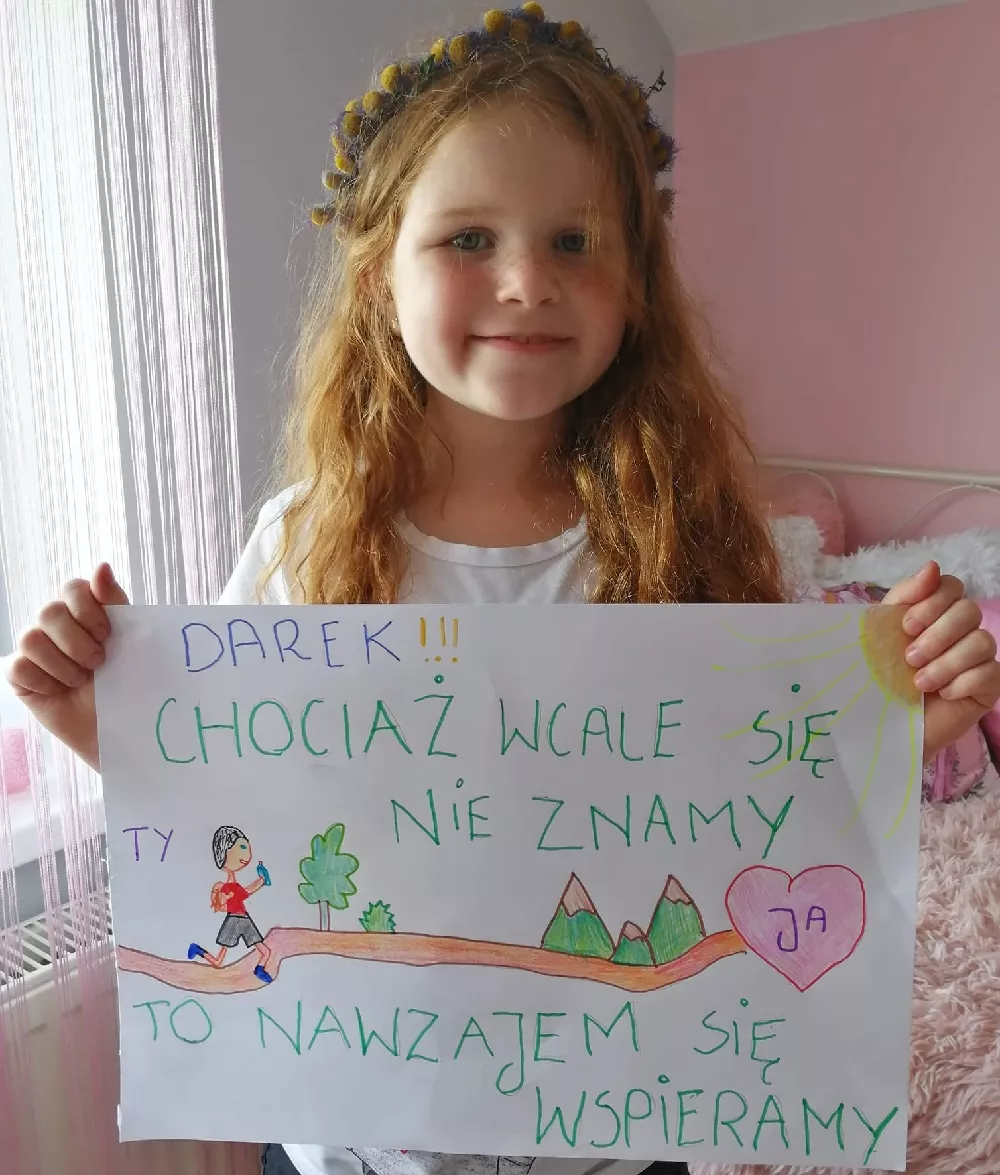 DAREK!!!
CHOCIAŻ WCALE SIĘ
NIE ZNAMY
TY
JA
TO NAWZAJEM SIĘ
WSPIERAMY